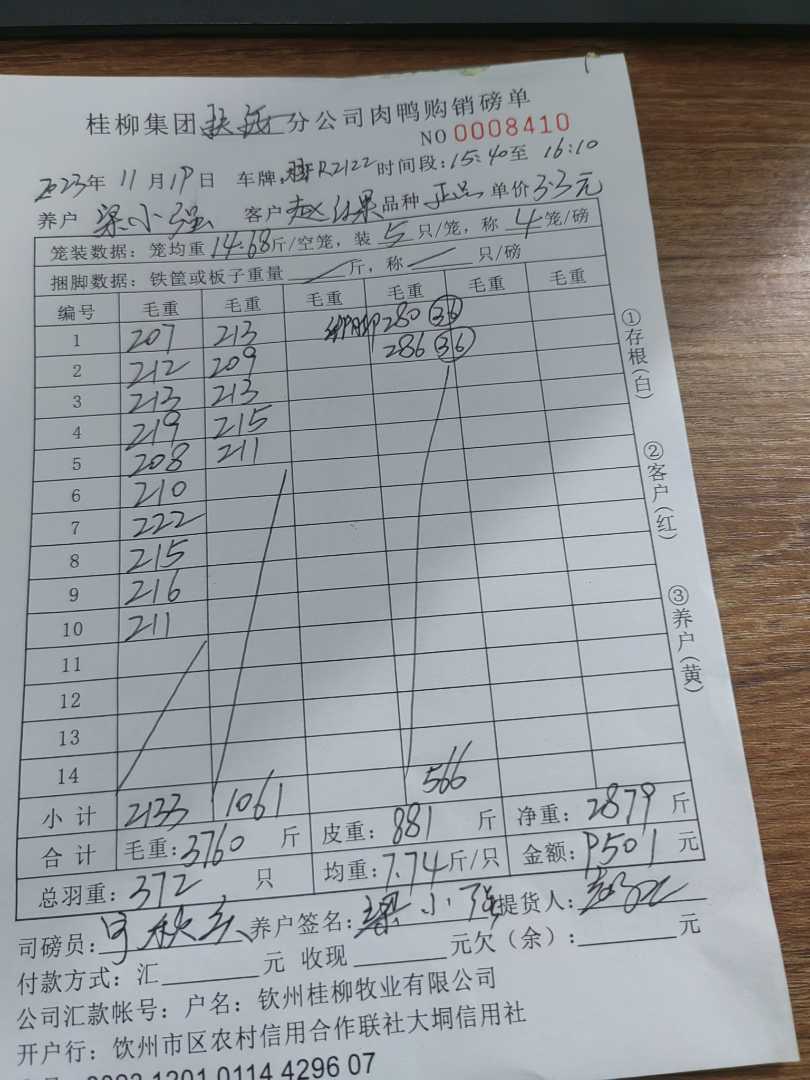 桂柳集团 分公司肉鸭购销磅单
NO 0008410
2023年 11月19日 车牌: R2122 时间段:15:40至 16:10
养户 梁小强 客户 赵红果 品种 正品 单价 3.3元
笼装数据:笼均重 14.68斤/空笼,装 5 只/笼,称 4 笼/磅
捆脚数据:铁筐或板子重量 斤,称 只/磅
编号 毛重 毛重 毛重 毛重 毛重 毛重
1 207 213 280 36
2 212 209 286 36
3 213 213
4 219 215
5 208 211
6 210
7 222
8 215
9 216
10 211
11
12
13
14
小计 2133 1061 566
合计 毛重:3760 斤 皮重:881 斤 净重:2879 斤
总羽重:372 只 均重:7.74斤/只 金额:9501 元
司磅员: 养户签名:梁小强 提货人:
付款方式:汇 元 收现 元欠(余): 元
公司汇款帐号:户名:钦州桂柳牧业有限公司
开户行:钦州市区农村信用合作联社大垌信用社
1201 0114 4296 07
①存根(白)
②客户(红)
③养户(黄)